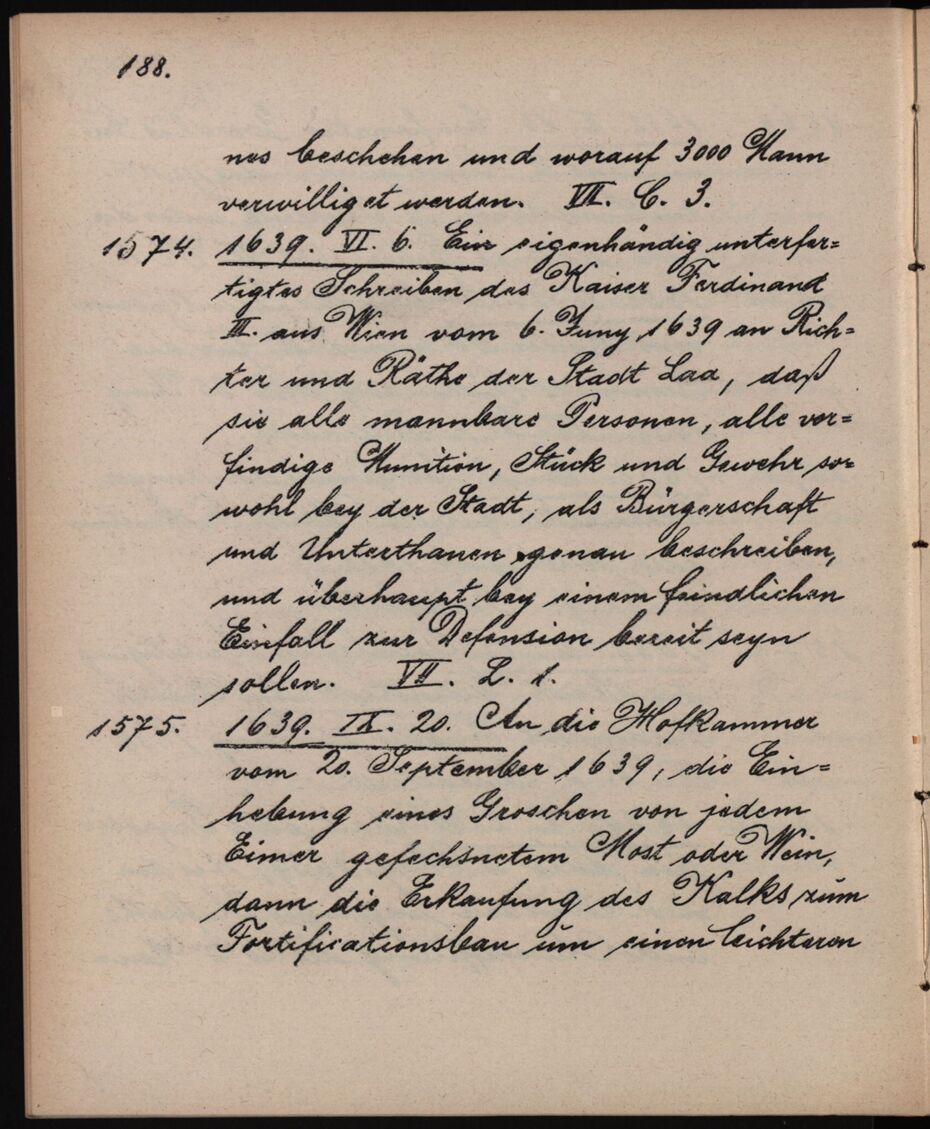 188.
nes beschehen und worauf 3000 Mann
verwilliget werden. VII. C. 3.
1574. 1639. VI. 6. Ein eigenhändig unterfer=
tigtes Schreiben des Kaiser Ferdinand
III. aus Wien vom 6. Juny 1639 an Rich=
ter und Räthe der Stadt Laa, daß
sie alle mannbare Personen, alle vor=
findige Munition, Stück und Gewehr so=
wohl bey der Stadt, als Bürgerschaft
und Unterthanen genau beschreiben,
und überhaupt bey einem feindlichen
Einfall zur Defension bereit seyn
sollen. VII. L. 1.
1575. 1639. IX. 20. An die Hofkammer
vom 20. September 1639, die Ein=
hebung eines Groschen von jedem
Eimer gefechsnetem Most oder Wein,
dann die Erkaufung des Kalks zum
Fortificationsbau um einen leichteren